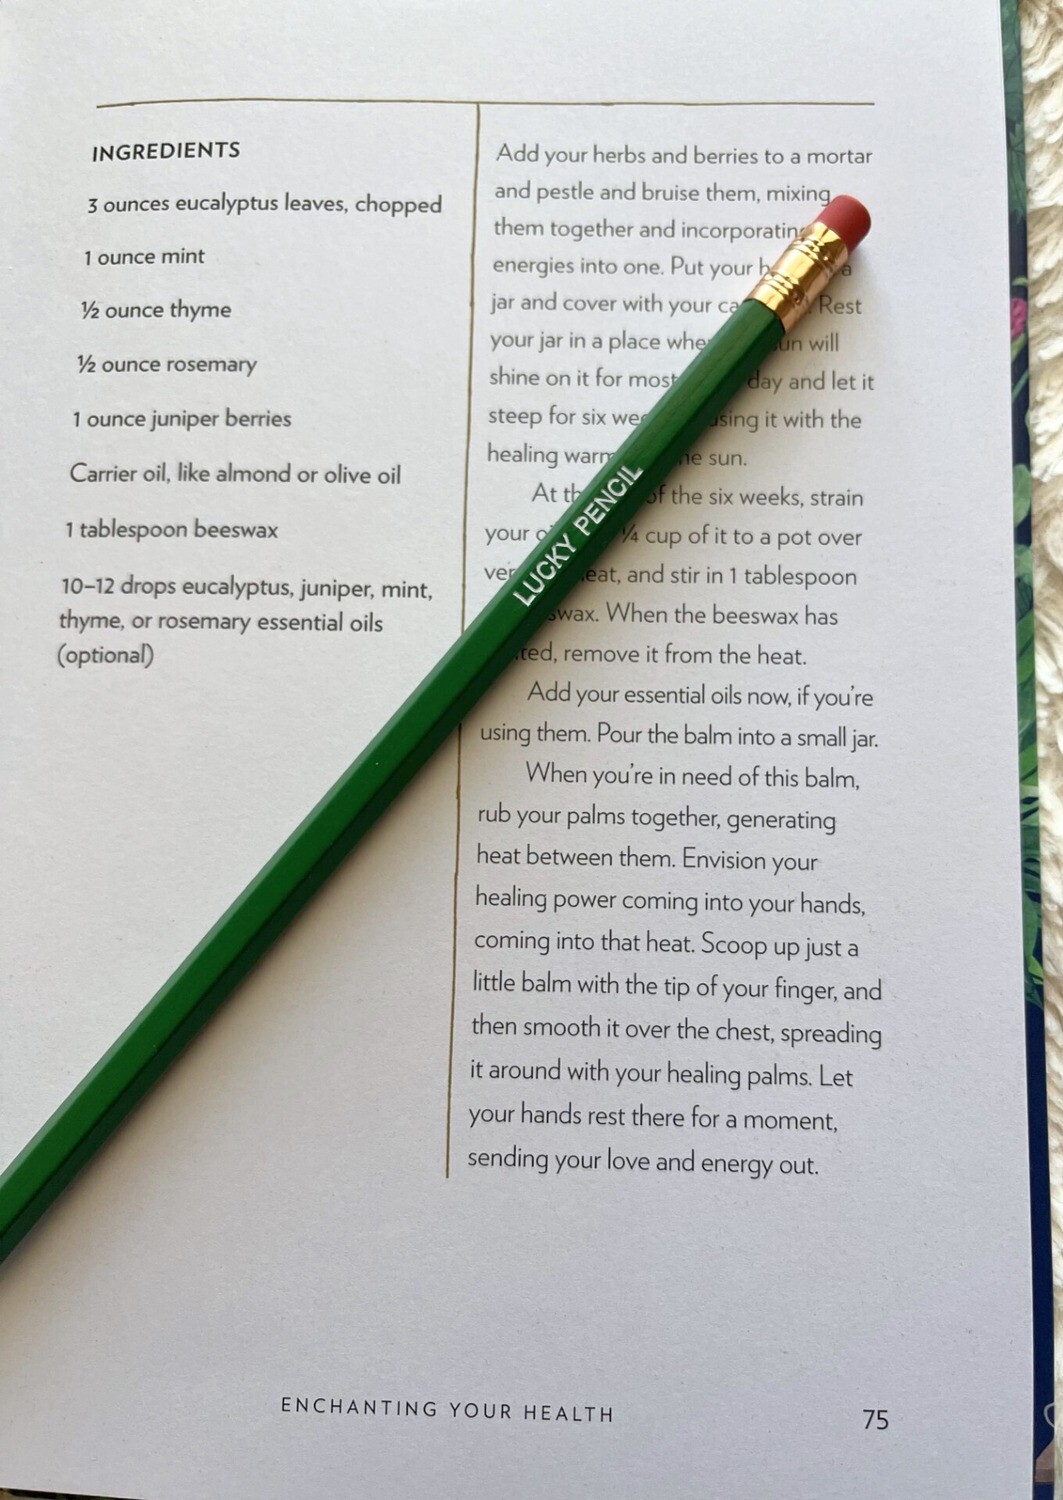 INGREDIENTS
3 ounces eucalyptus leaves, chopped
1 ounce mint
½ ounce thyme
½ ounce rosemary
1 ounce juniper berries
Carrier oil, like almond or olive oil
1 tablespoon beeswax
10–12 drops eucalyptus, juniper, mint,
thyme, or rosemary essential oils
(optional)
Add your herbs and berries to a mortar
and pestle and bruise them, mixing
them together and incorporating
energies into one. Put your a
jar and cover with your Rest
your jar in a place will
shine on it for most day and let it
steep for six it with the
healing sun.
At of the six weeks, strain
your ¼ cup of it to a pot over
and stir in 1 tablespoon
When the beeswax has
remove it from the heat.
Add your essential oils now, if you're
using them. Pour the balm into a small jar.
When you're in need of this balm,
rub your palms together, generating
heat between them. Envision your
healing power coming into your hands,
coming into that heat. Scoop up just a
little balm with the tip of your finger, and
then smooth it over the chest, spreading
it around with your healing palms. Let
your hands rest there for a moment,
sending your love and energy out.
LUCKY PENCIL
ENCHANTING YOUR HEALTH
75